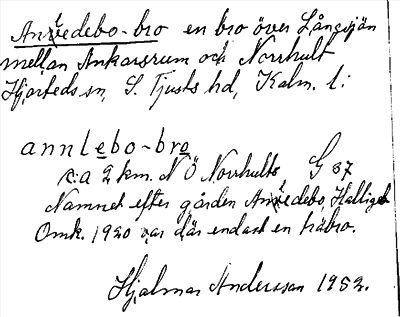 Annedebo-bro en bro över Långsjön
mellan Ankarsrum och Norrhult
Hjorteds sn, S. Tjusts hd, Kalm. l:
annlebo-bro
c:a 2 km. N Ö Norrhults G 37
Namnet efter gården Annedebo, Hallingeb
Omk. 1920 var där endast en träbro.
Hjalmar Andersson 1952.